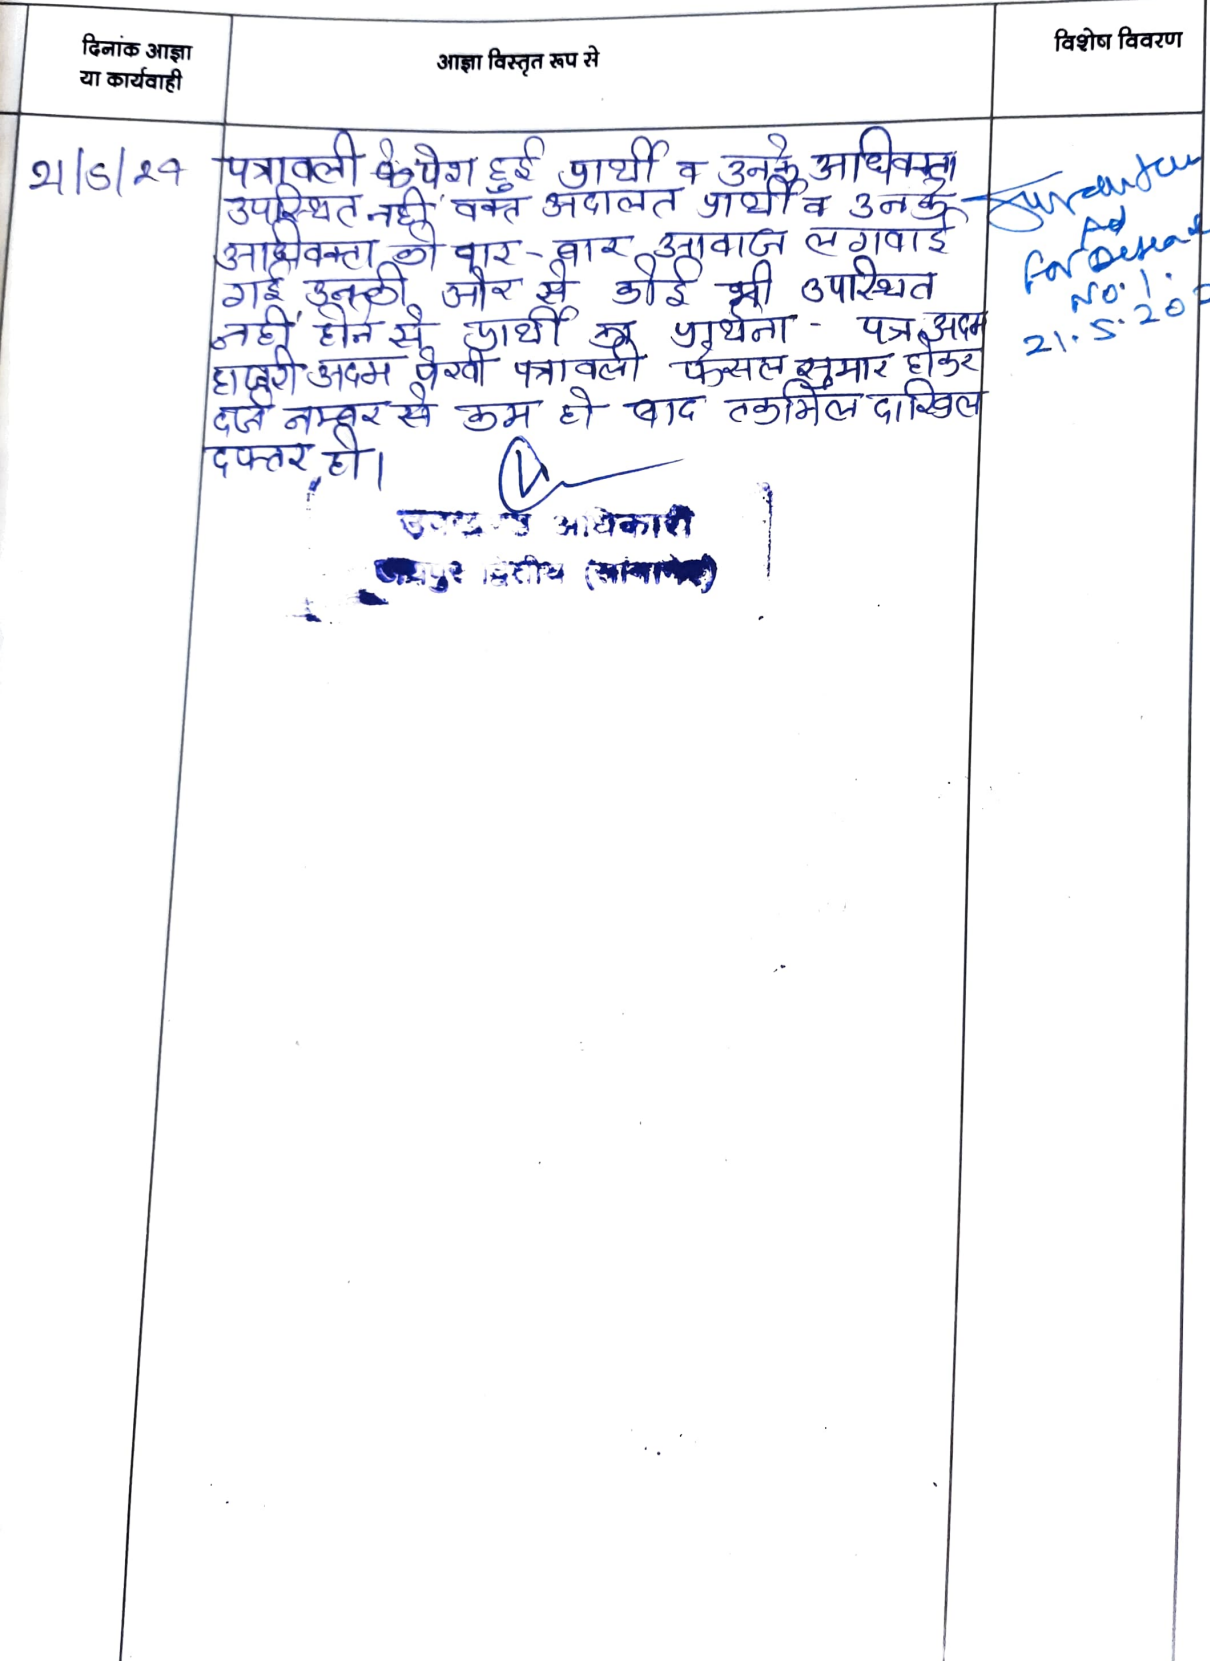 दिनांक आज्ञा
या कार्यवाही
आज्ञा विस्तृत रूप से
विशेष विवरण
21/5/24
पत्रावली पेश हुई प्रार्थी व उनके अधिवक्ता
उपस्थित नहीं वक्त अदालत प्रार्थी व उनके
अधिवक्ता को बार-बार आवाज लगवाई
गई उनकी और से कोई भी उपस्थित
नहीं होने से प्रार्थी का प्रार्थना - पत्र अदम
हाजरी अदम पेरवी पत्रावली फैसल सुमार होकर
दर्ज नम्बर से कम हो बाद तकमिल दाखिल
दफ्तर हो।
अधिकारी
जयपुर द्वितीय
Ad
for
No. 1.
21.5.20